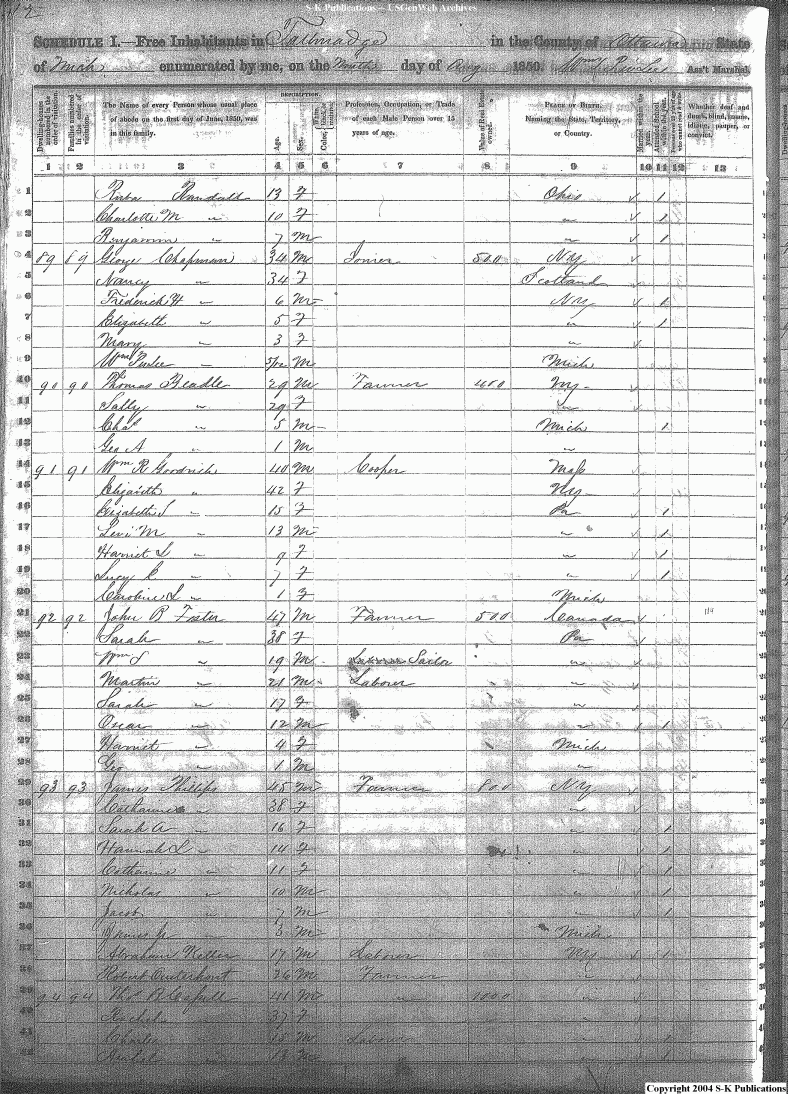 S-K Publications – USGenWeb Archives
SCHEDULE I.—Free Inhabitants in Tallmadge in the County of Ottawa State
of Mich enumerated by me, on the Ninth day of Aug 1850. Ass't Marshal.
Dwelling-houses numbered in the order of visitation.
Families numbered in the order of visitation.
The Name of every Person whose usual place of abode on the first day of June, 1850, was in this family.
DESCRIPTION.
Age.
Sex.
Color,
Profession, Occupation, or Trade of each Male Person over 15 years of age.
Value of Real Estate owned.
PLACE OF BIRTH. Naming the State, Territory, or Country.
Married within the year.
Attended School within the year.
Whether deaf and dumb, blind, insane, idiotic, pauper, or convict.
1 2 3 4 5 6 7 8 9 10 11 12 13
1 Randall 13 F Ohio ✓ 1
2 Charlotte M " 10 F " ✓ 1
3 Benjamin " 7 M " ✓ 1
4 89 89 George Chapman 34 M Joiner 500 NY ✓
5 Nancy " 34 F Scotland ✓
6 Frederick H " 6 M NY ✓ 1
7 Elizabeth " 5 F " ✓ 1
8 Mary " 3 F " ✓
9 Wm " 5/12 M Mich
10 90 90 Thomas Beadle 29 M Farmer 400 NY ✓
11 Sally " 29 F " ✓
12 Chas " 5 M Mich 1
13 Geo A " 1 M "
14 91 91 Wm R Goodrich 40 M Cooper Mass ✓
15 Elizabeth " 42 F NY ✓
16 Elizabeth S " 15 F Pa ✓ 1
17 Levi M " 13 M " ✓ 1
18 Harriet L " 9 F " ✓ 1
19 Lucy C " 7 F " ✓ 1
20 Caroline L " 1 F Mich
21 92 92 John B Foster 47 M Farmer 500 Canada ✓
22 Sarah " 38 F Pa ✓
23 Wm S " 19 M Sailor " ✓
24 Martin " 21 M Laborer " ✓
25 Sarah " 17 F " ✓
26 Oscar " 12 M " ✓ 1
27 Harriet " 4 F Mich
28 Geo " 1 M "
29 93 93 James Philips 45 M Farmer 800 NY ✓
30 Catharine " 38 F " ✓
31 Sarah A " 16 F " ✓ 1
32 Hannah L " 14 F " ✓ 1
33 Catharine " 11 F " ✓ 1
34 Nicholas " 10 M " ✓ 1
35 Jacob " 7 M " ✓ 1
36 James Jr " 3 M Mich
37 Abraham 17 M Laborer NY ✓ 1
38 Robert 36 M Farmer "
39 94 94 Thos B 41 M " 1000 "
40 Rachel " 37 F "
41 Charles " 15 M Laborer " 1
42 " 13 M " 1
Copyright 2004 S-K Publications